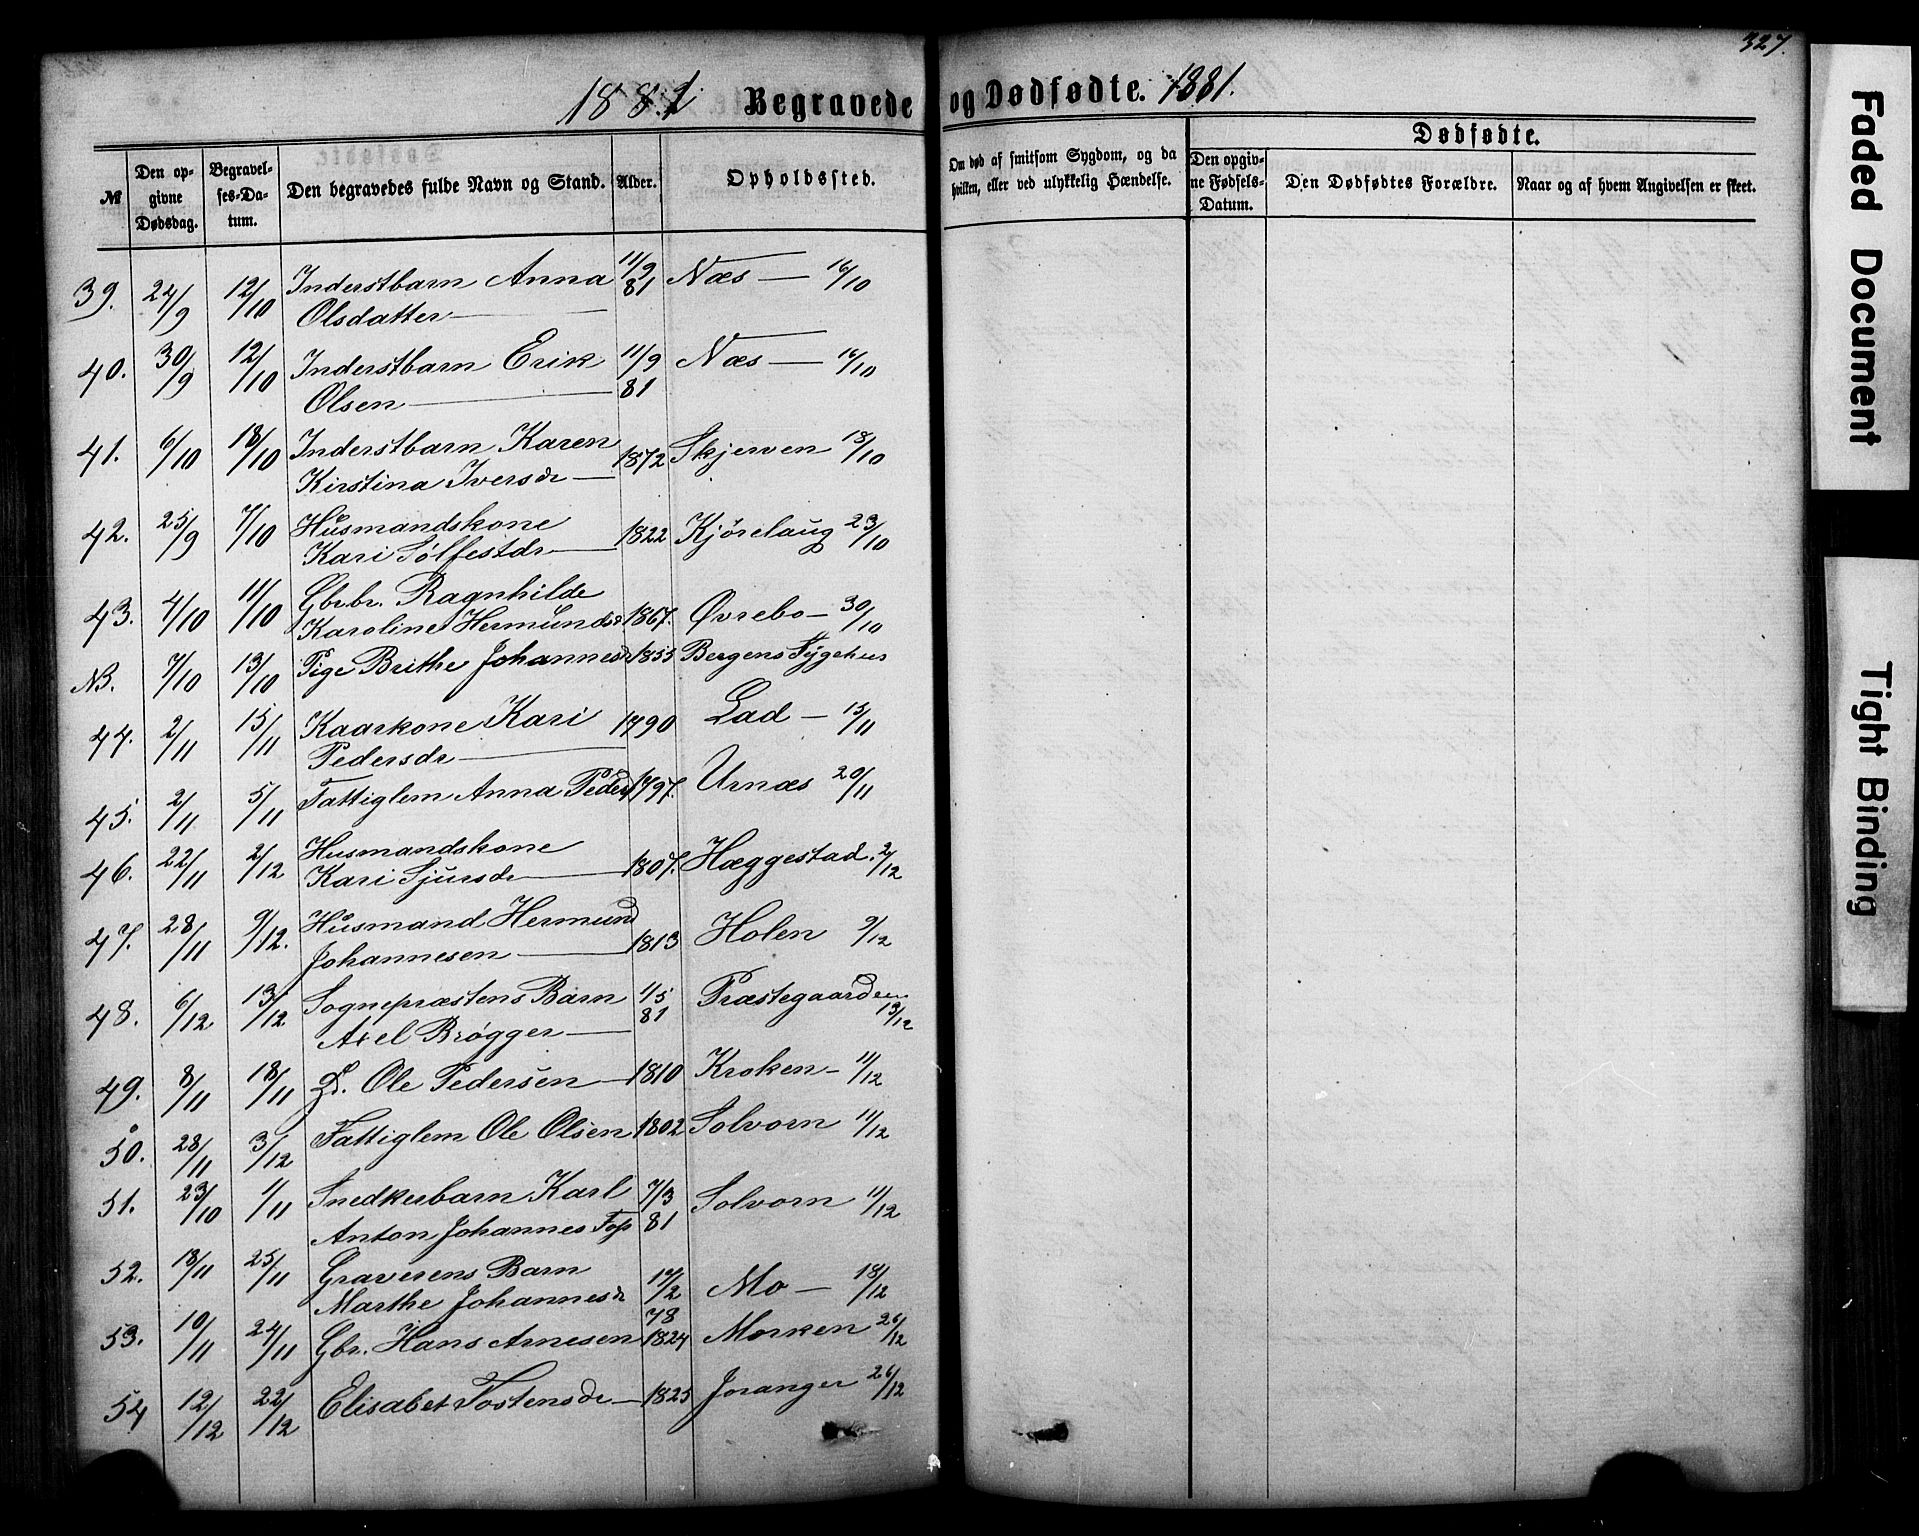 327.
1881 Begravede og Dødfødte. 1881.
№
Den opgivne Dødsdag.
Begravelses-Datum.
Den begravedes fulde Navn og Stand.
Alder.
Opholdssted.
Om død af smitsom Sygdom, og da hvilken, eller ved ulykkelig Hændelse.
Dødfødte.
Den opgivne Fødsels-Datum.
Den Dødfødtes Forældre.
Naar og af hvem Angivelsen er skeet.
39. 24/9 12/10 Inderstbarn Anna 11/9 81 Næs — 16/10
Olsdatter
40. 30/9 12/10 Inderstbarn Erik 11/9 81 Næs — 16/10
Olsen
41. 6/10 18/10 Inderstbarn Karen 1872 Skjerven 18/10
Kirstina Iversdr
42. 25/9 7/10 Husmandskone 1822 Kjørelaug 23/10
Kari Sølfestdr
43. 4/10 11/10 Gbrbr. Ragnhilde
Karoline Hermundsdr 1867. Øvrebo — 30/10
NB. 7/10 13/10 Pige Brithe Johannesdr 1855 Bergens Sygehus
44. 2/11 15/11 Kaarkone Kari 1790 Lad — 15/11
Pedersdr
45. 2/11 5/11 Fattiglem Anna Pedersd 1797. Urnæs 20/11
46. 22/11 2/12 Husmandskone
Kari Sjursdr 1807. Hæggestad. 2/12
47. 28/11 9/12. Husmand Hermund
Johannesen 1813 Holen 9/12
48. 6/12 13/12 Sognepræstens Barn 1/5 81 Præstegaarden 13/12
Axel Brøgger
49. 8/11 18/11 Ole Pedersen 1810 Kroken — 11/12
50. 28/11 3/12 Fattiglem Ole Olsen 1802 Solvorn 11/12
51. 23/10 1/11 Snedkerbarn Karl 7/3 81 Solvorn 11/12
Anton Johannes
52. 18/11 25/11 Graverens Barn
Marthe Johannesdr 17/2 78 Mo — 18/12
53. 10/11 24/11 Gbr. Hans Arnesen 1824 Morken 26/12
54 12/12 22/12 Elisabet Tostensdr — 1825 Joranger 26/12
Faded Document
Tight Binding